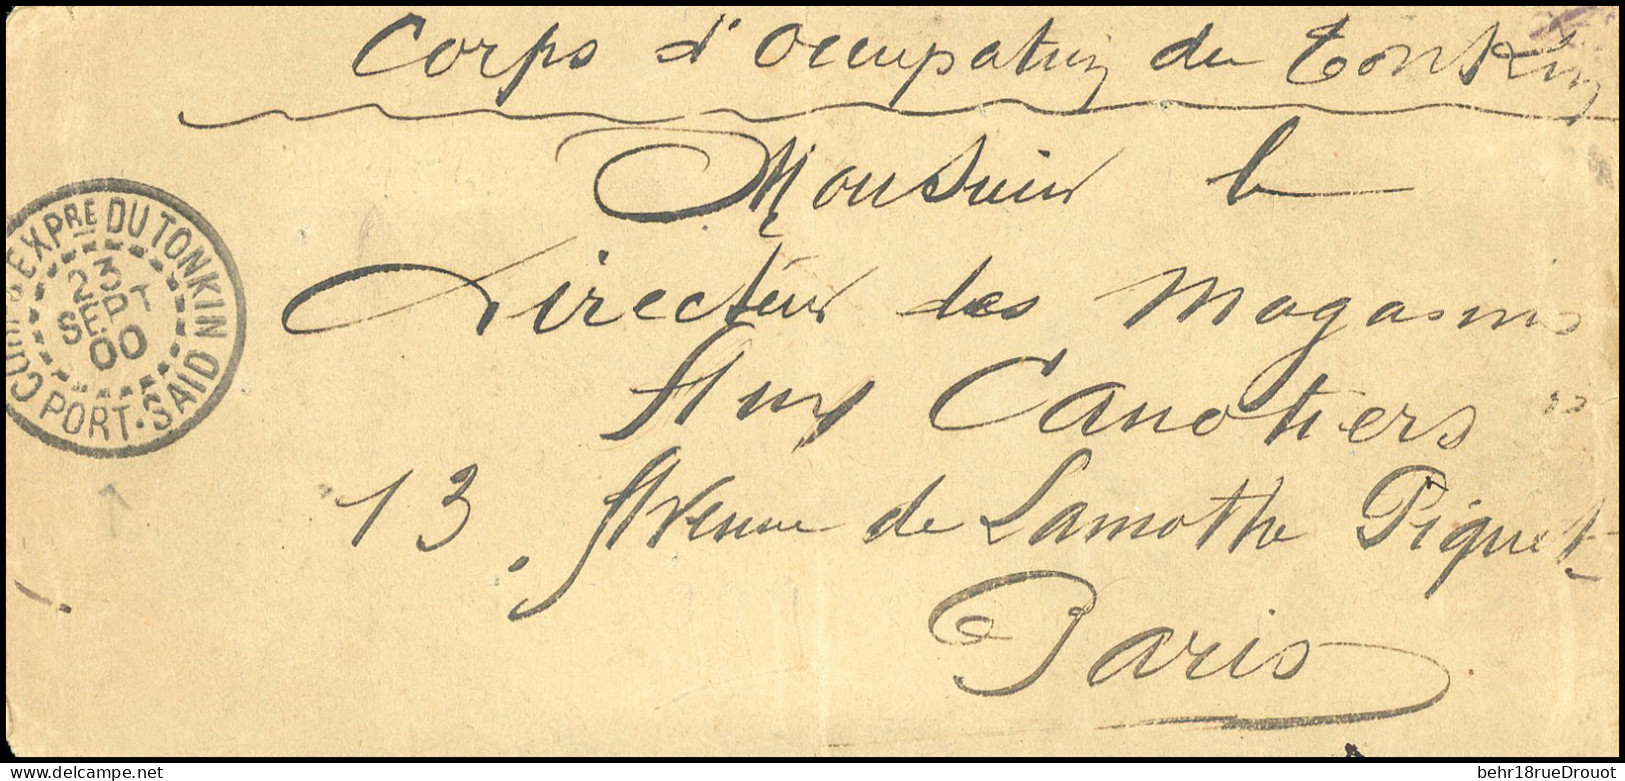 Corps d'Occupation du Tonkin
Monsieur le
Directeur des Magasins
Aux Canotiers
13. Avenue de Lamothe Piquet
Paris
EXPRE DU TONKIN
23
SEPT
00
PORT-SAID
behr18rueDrouot